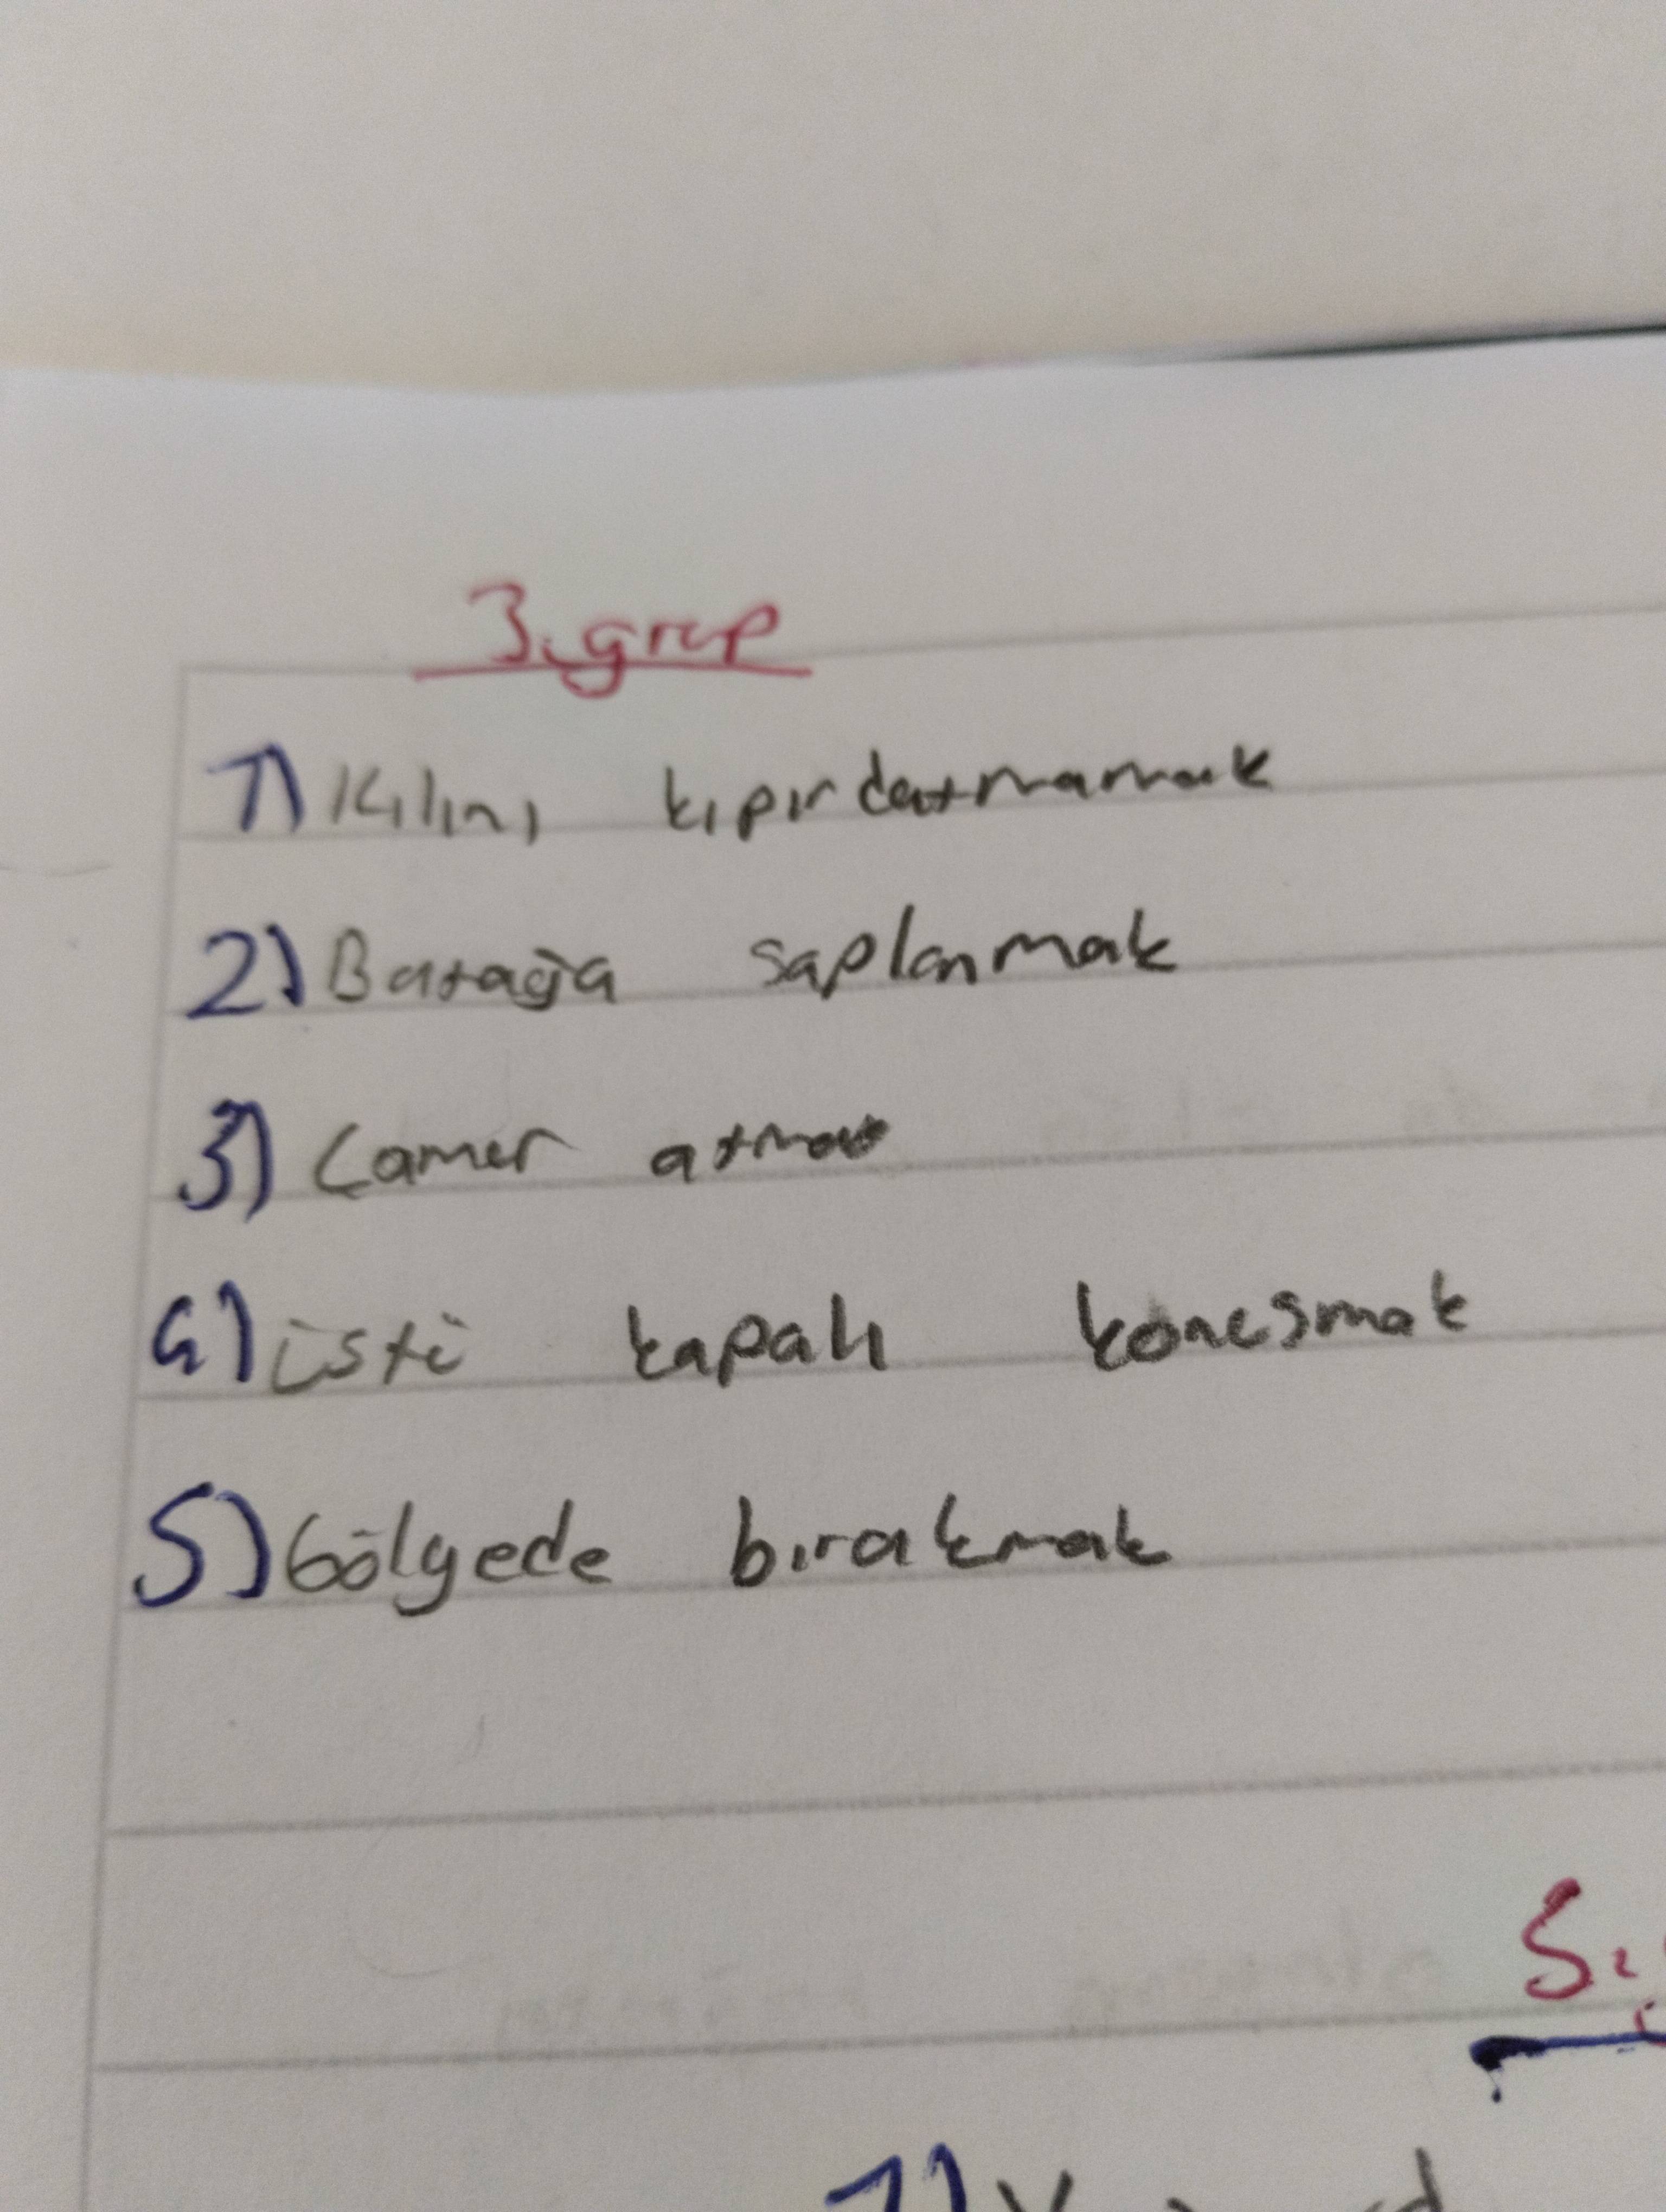 3. grup
1) Kılını kıpırdatmamak
2) Batağa saplanmak
3) Çamur atmak
4) üstü kapalı konuşmak
5) Gölgede bırakmak
5.
1)